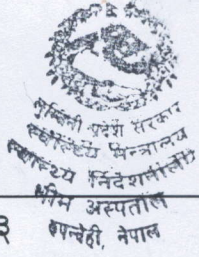 लुम्बिनी प्रदेश सरकार
स्वास्थ्य मन्त्रालय
स्वास्थ्य निर्देशनालय
भीम अस्पताल
रुपन्देही, नेपाल
३